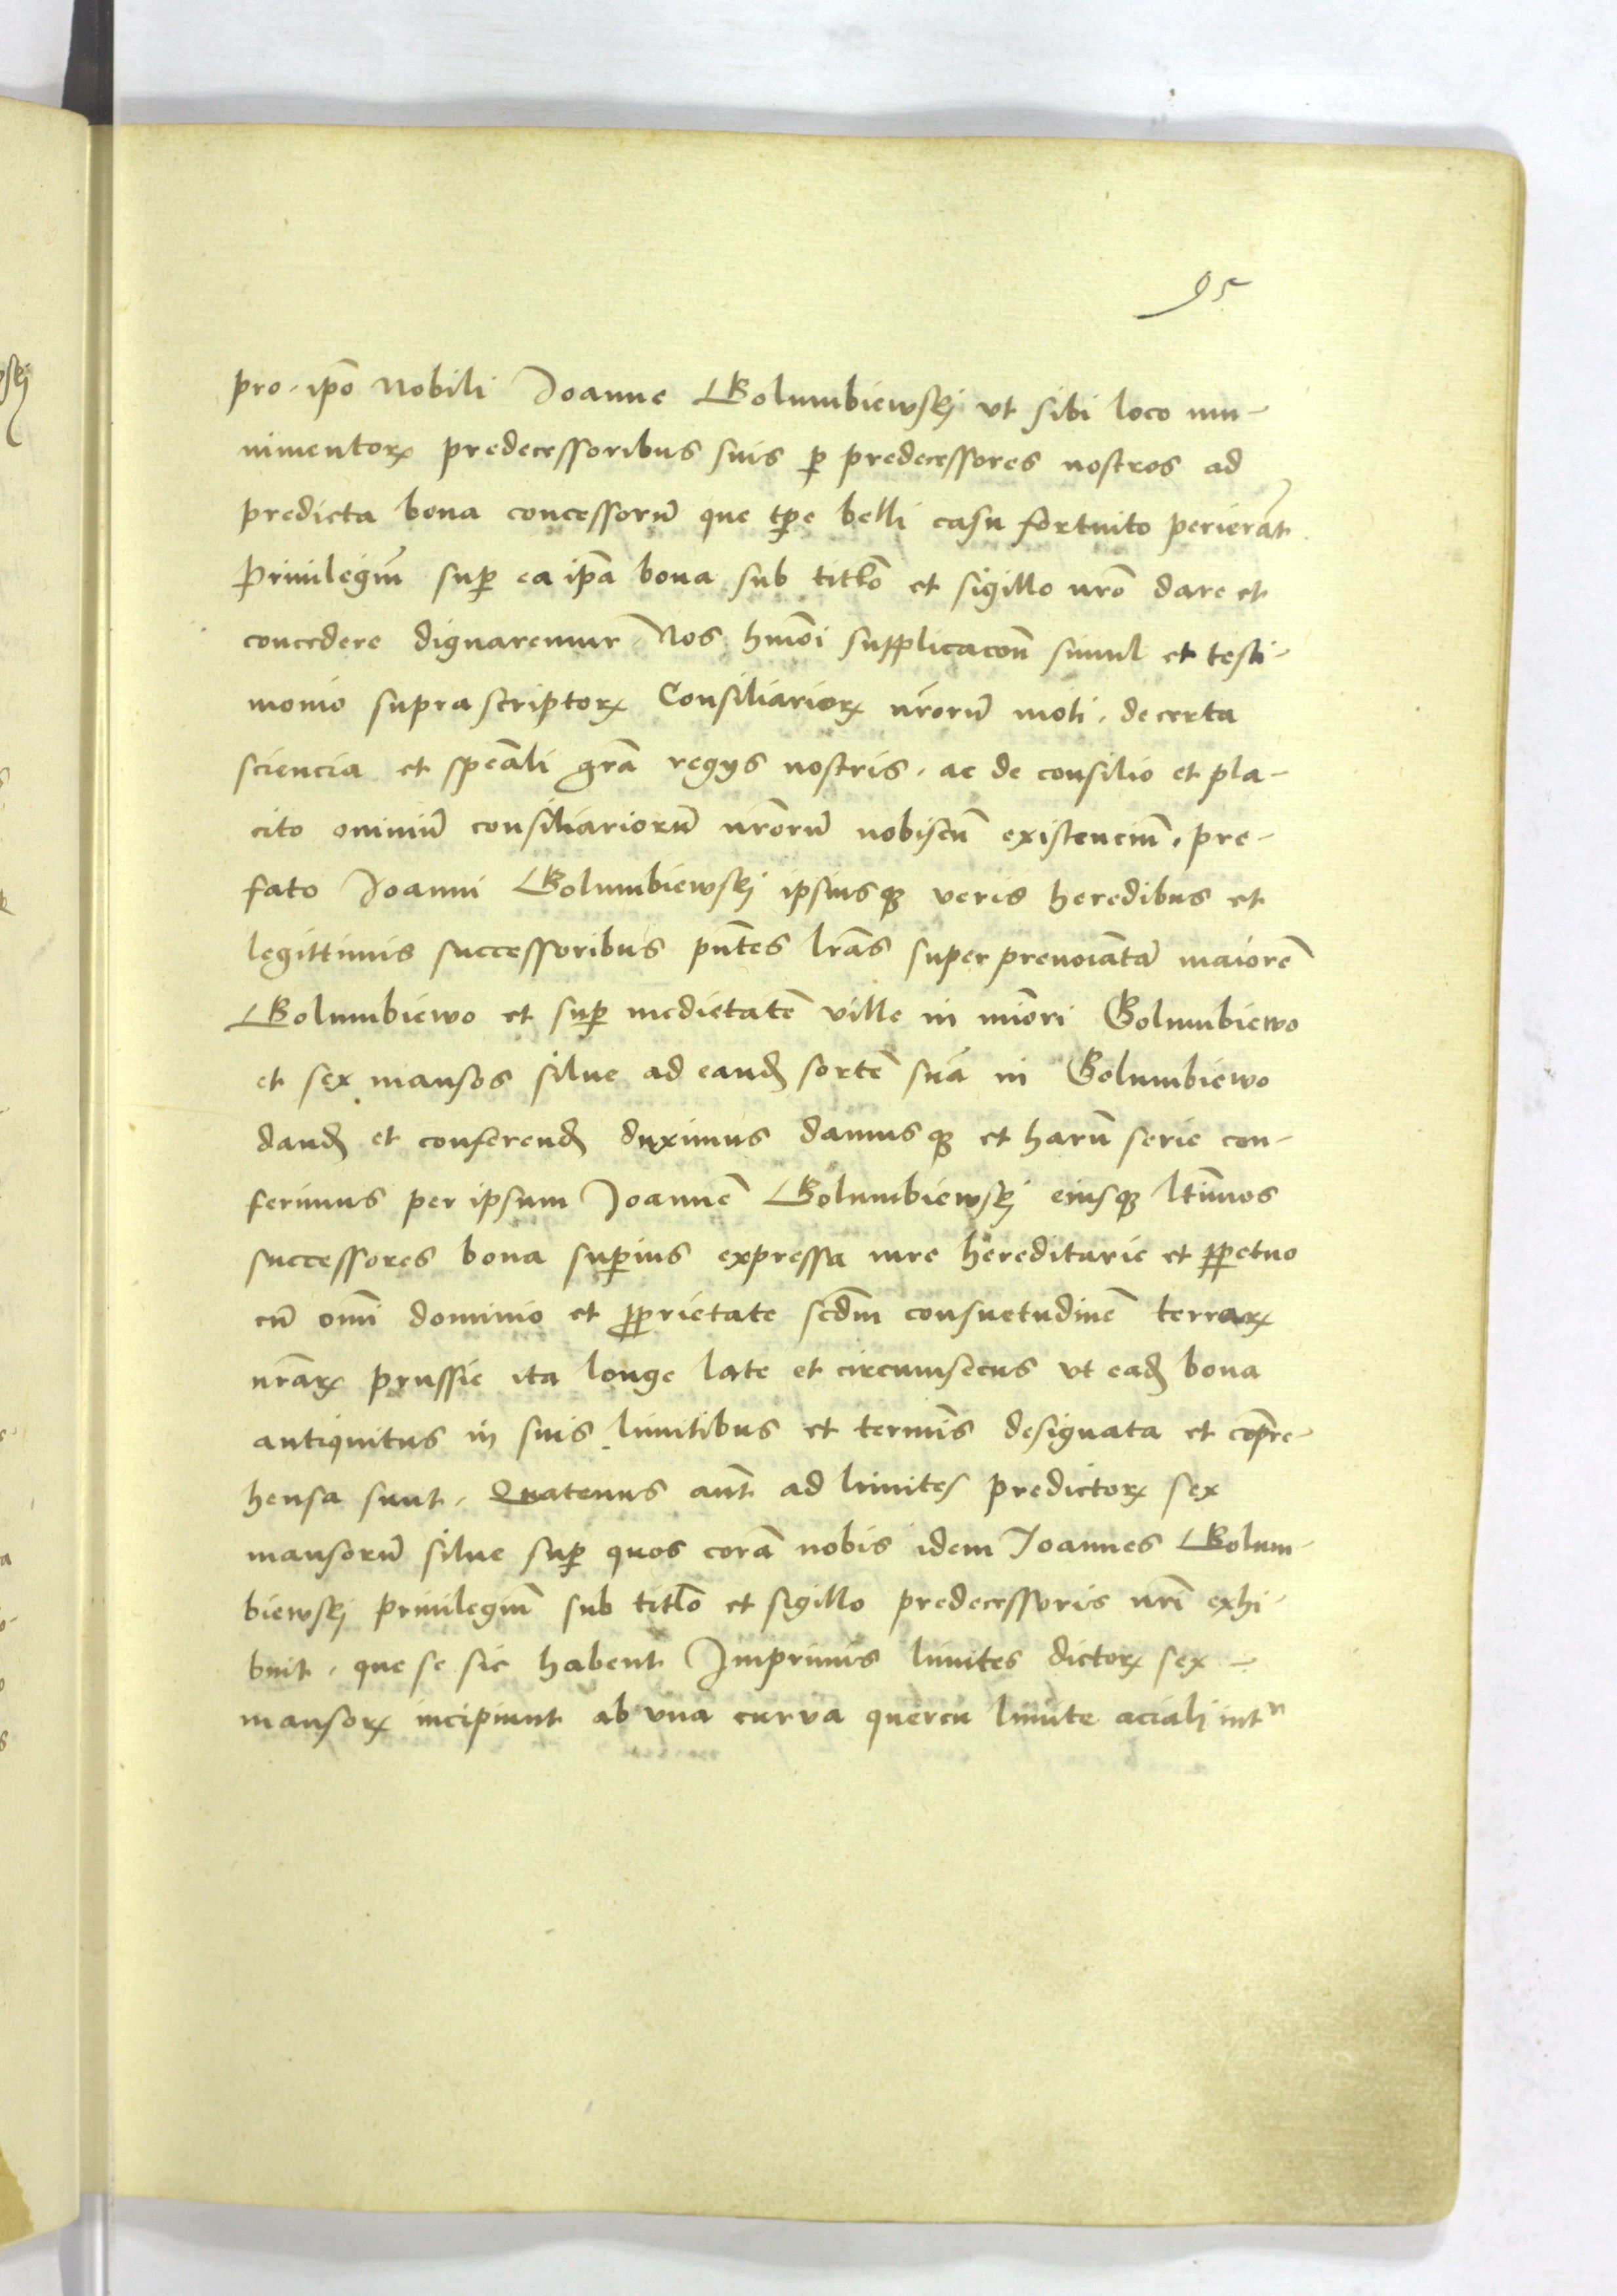 95
pro ip̄o Nobili Joanne Golumbiewskj vt sibi loco mu-
nimentoꝝ predecessoribus suis ꝑ predecessores nostros ad
predicta bona concessorū que tp̄e belli casu fortuito perierāt
Priuilegiū suꝑ ea ip̄a bona sub titl̄o et sigillo nr̄o dare et
concedere dignaremur Nos hmōi supplicacōn̄ simul et testi-
monio suprascriptoꝝ Consiliarioꝝ nr̄orū moti, de certa
sciencia et spēali gr̄a regijs nostris, ac de consilio et pla-
cito omniū consiliariorū nr̄orū nobiscū existenciū, pre-
fato Joanni Golumbiewskj ipsiusqꝫ veris heredibus et
legittimis successoribus pn̄tes lr̄as super prenoīatā maiorē
Golumbiewo et suꝑ medietatē ville in miōri Golumbiewo
et sex mansos silue ad eandꝫ sortē suā in Golumbiewo
dandꝫ et conferendꝫ duximus damusqꝫ et harū serie con-
ferimus per ipsum Joannē Golumbiewskj eiusqꝫ ltīmos
successores bona suꝑius expressa iure hereditarie et ꝑpetuo
cū omī dominio et ꝓprietate scd̄m consuetudinē terraꝝ
nr̄aꝝ prussie ita longe late et circumsecus vt eadꝫ bona
antiquitus in suis limitibus et termīs designata et cōpre-
hensa sunt, Quatenus aūt ad limites predictoꝝ sex
mansorū silue suꝑ quos corā nobis idem Joannes Golum-
biewskj priuilegiū sub titl̄o et sigillo predecessoris nr̄i exhi-
buit, que se sic habent Imprimis limites dictoꝝ sex -
mansoꝝ incipiunt ab vna curva quercu limite aciali int